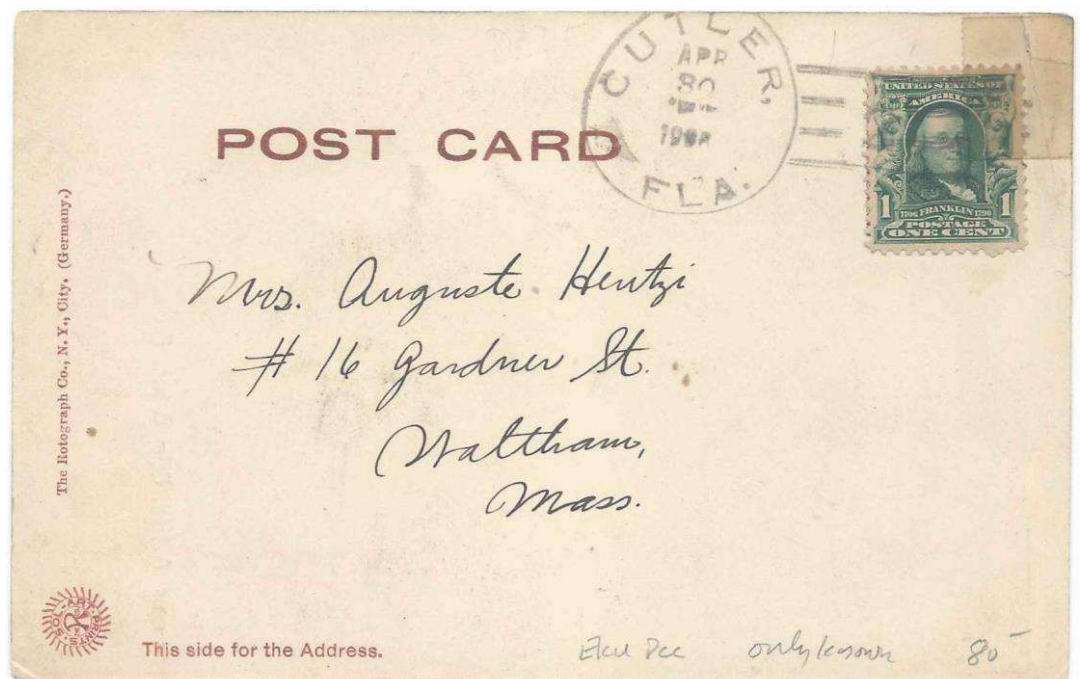 CUTLER,
APR
30
FLA.
UNITED STATES OF
AMERICA
1 1706 FRANKLIN 1790 1
POSTAGE
ONE CENT
POST CARD
The Rotograph Co., N. Y., City. (Germany.)
Mrs. Auguste Hentzi
# 16 Gardner St.
Waltham,
Mass.
SOL-ART-PRINTS
This side for the Address.
only known 80-